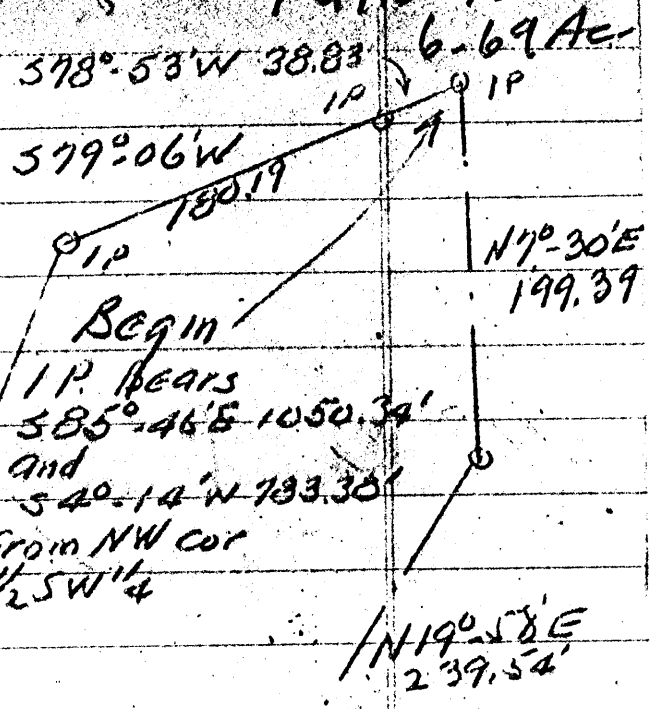 6-69 Ac-
S78°-53'W 38.83
1P
1P
S79°-06'W
180.19
1P
N7°-30'E
199.39
Begin
1P. Bears
S85°-46'E 1050.34'
and
S4°-14'W 733.30'
From NW Cor
1/2 SW 1/4
N19°-58'E
239.54'